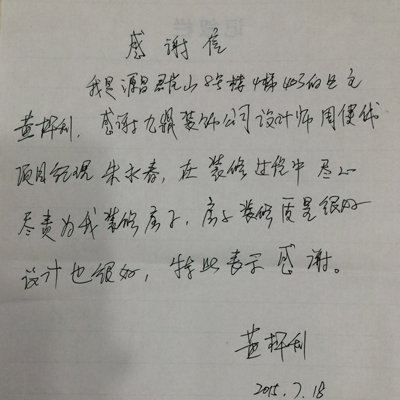 感谢信
我是源昌君龙山8号楼4梯403的业主
黄桦利，感谢九鼎装饰公司设计师周便线
项目经理朱永春，在装修过程中尽心
尽责为我装修房子，房子装修质量很好
设计也很好，特此表示感谢。
黄桦利
2015.7.18